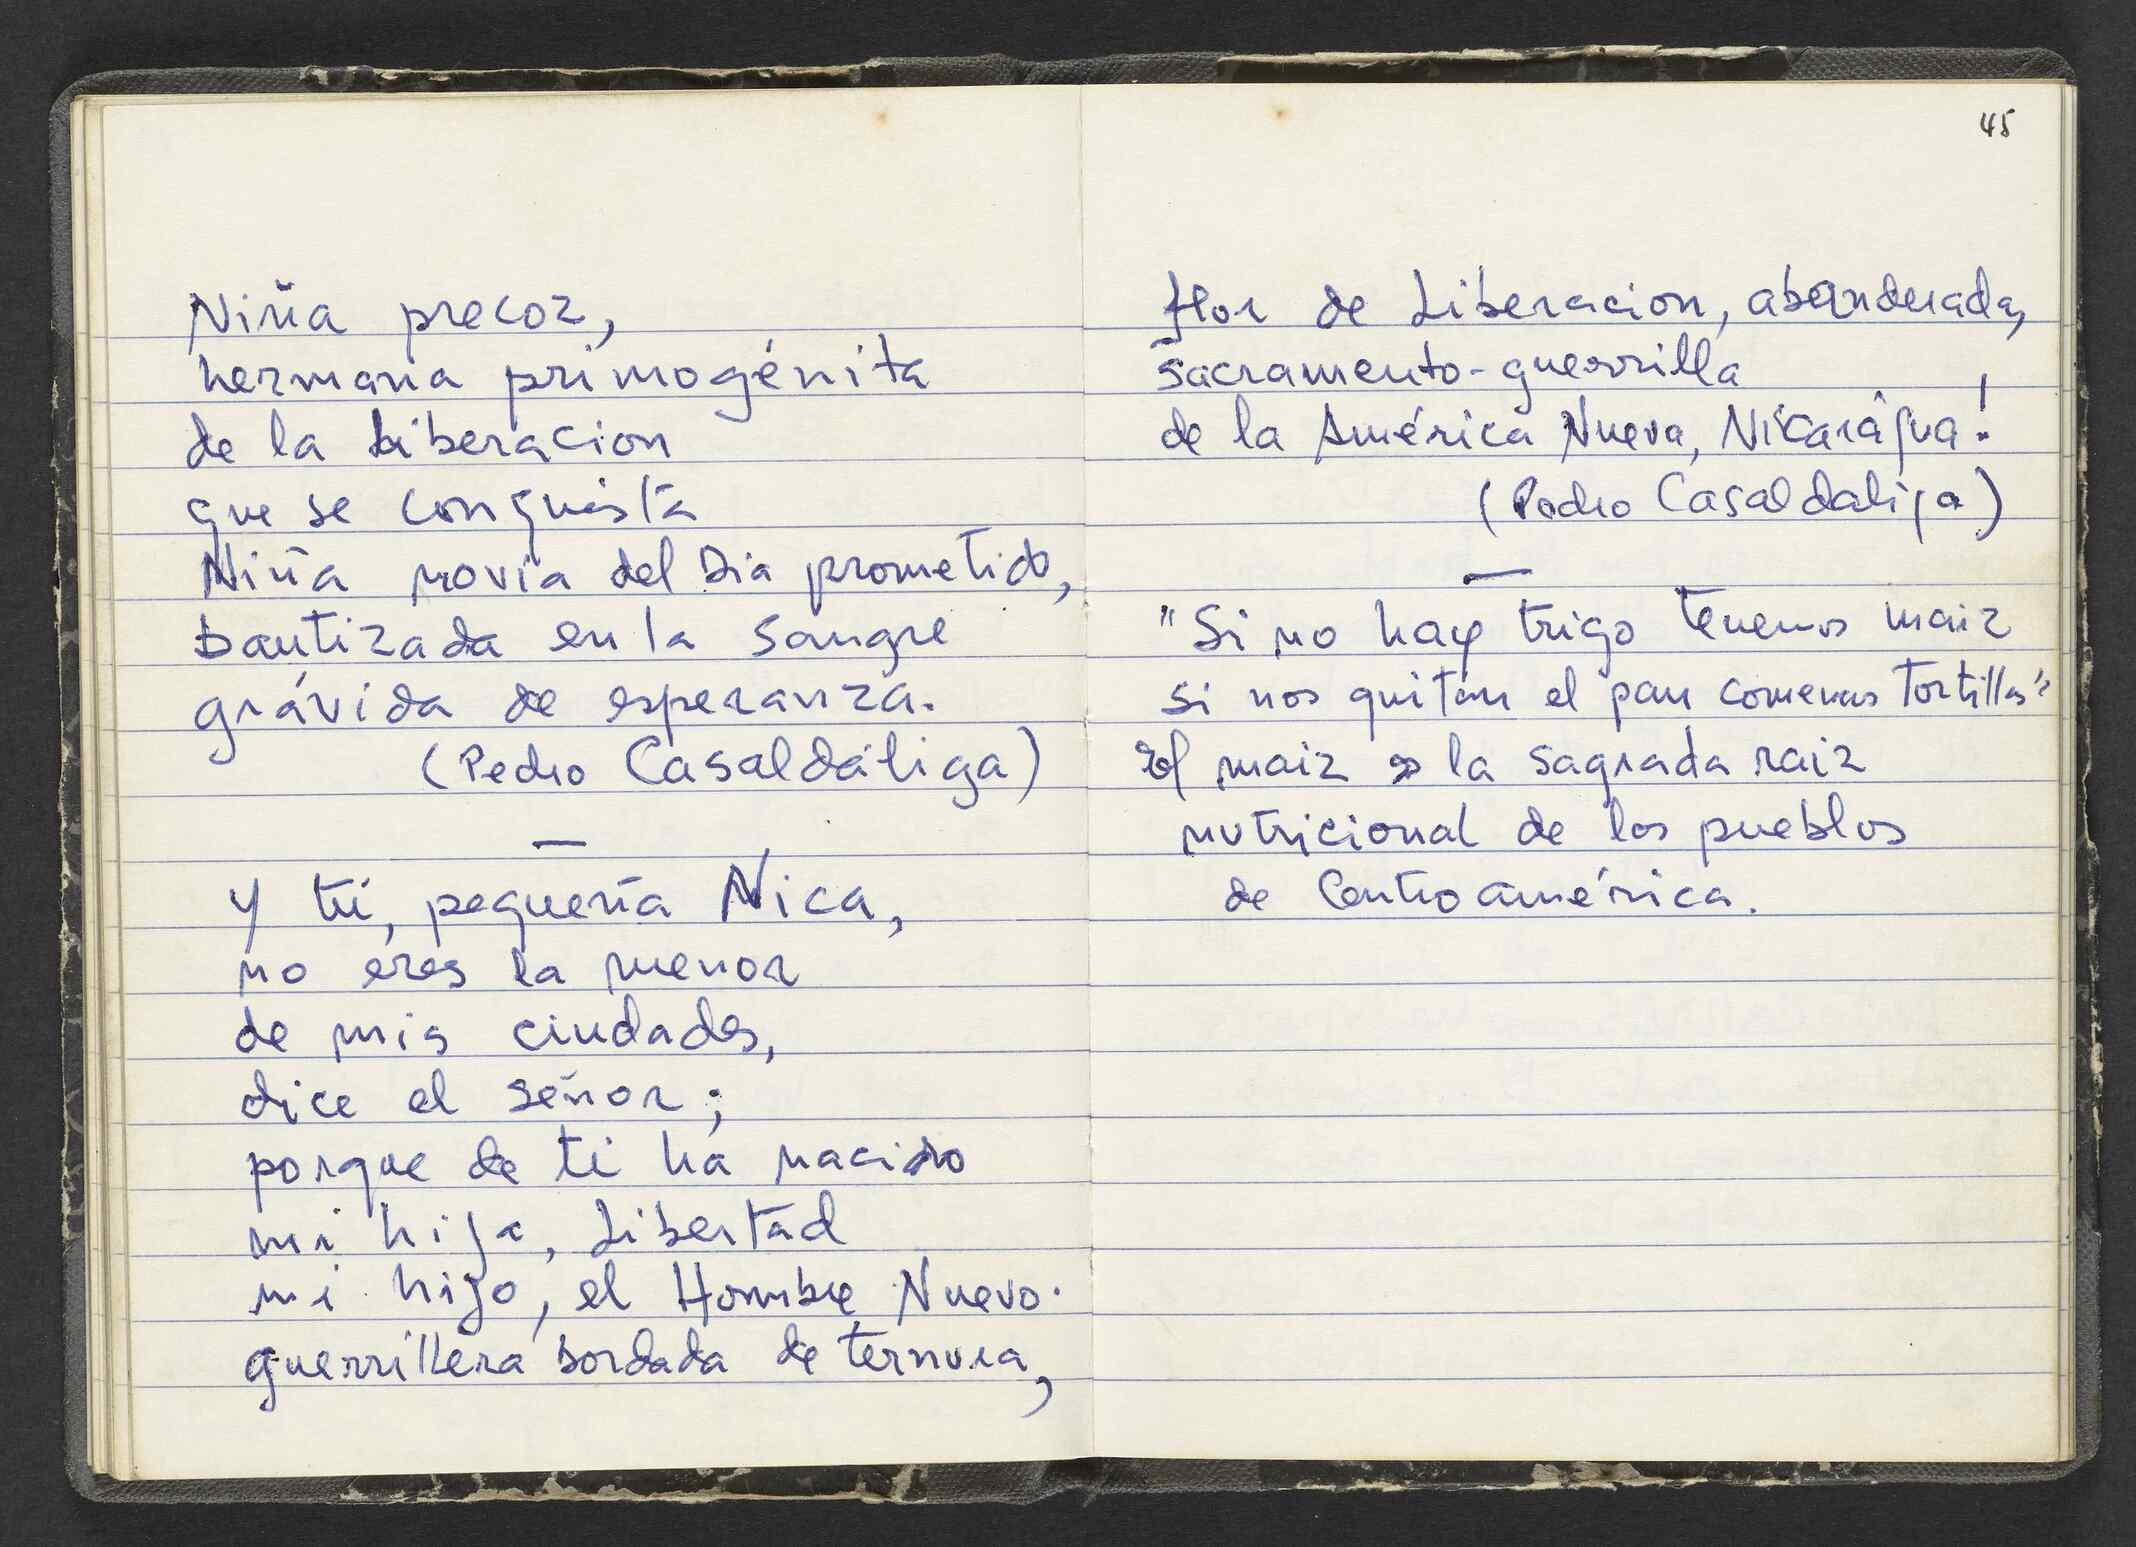 Niña precoz,
hermana primogénita
de la Liberacion
que se conquista
Niña novia del Dia prometido,
bautizada en la sangre
grávida de esperanza.
(Pedro Casaldáliga)
—
Y tú, pequeña Nica,
no eres la menor
de mis ciudades,
dice el señor;
porque de ti ha nacido
mi hija, Libertad
mi hijo, el Hombre Nuevo.
guerrillera bordada de ternura,
45
flor de Liberacion, abanderada,
sacramento-guerrilla
de la América Nueva, Nicarágua!
(Pedro Casaldaliga)
—
"Si no hay trigo tenemos maiz
si nos quitan el pan comemos tortillas"
El maiz es la sagrada raiz
nutricional de los pueblos
de Centroamérica.